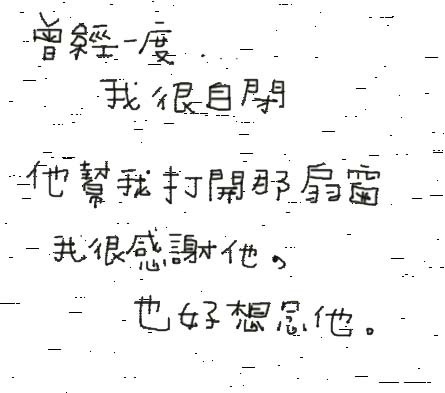 曾經一度.
我很自閉
他幫我打開那扇窗
我很感謝他。
也好想念他。